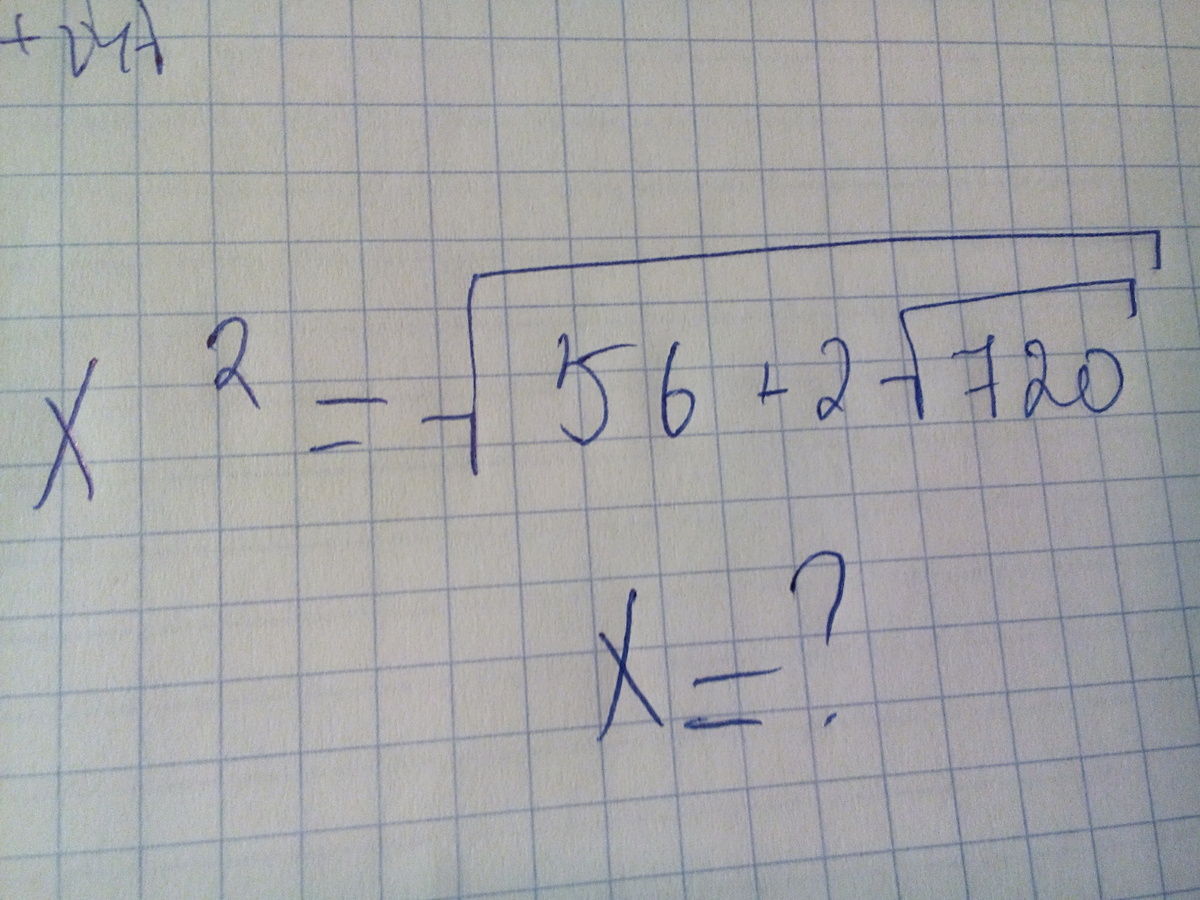 x² = √(56 + 2√720)
x = ?